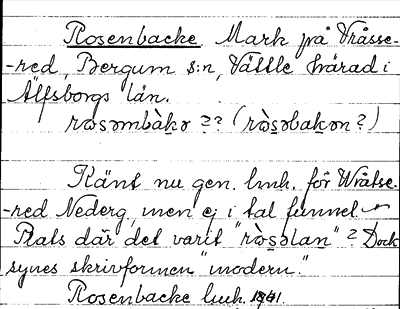 Rosenbacke Mark på Vråsse-
-red, Bergum s:n, Vättle härad i
Älfsborgs län.
rὼsombàkə ?? (rὼsəbakən ?)
Känt nu gen. lmk. för Wråtse-
-red Nederg. men ej i tal funnet.
Plats där det varit "rὼsəlan" ? Dock
synes skrivformen "modern."
Rosenbacke lmk. 1841.